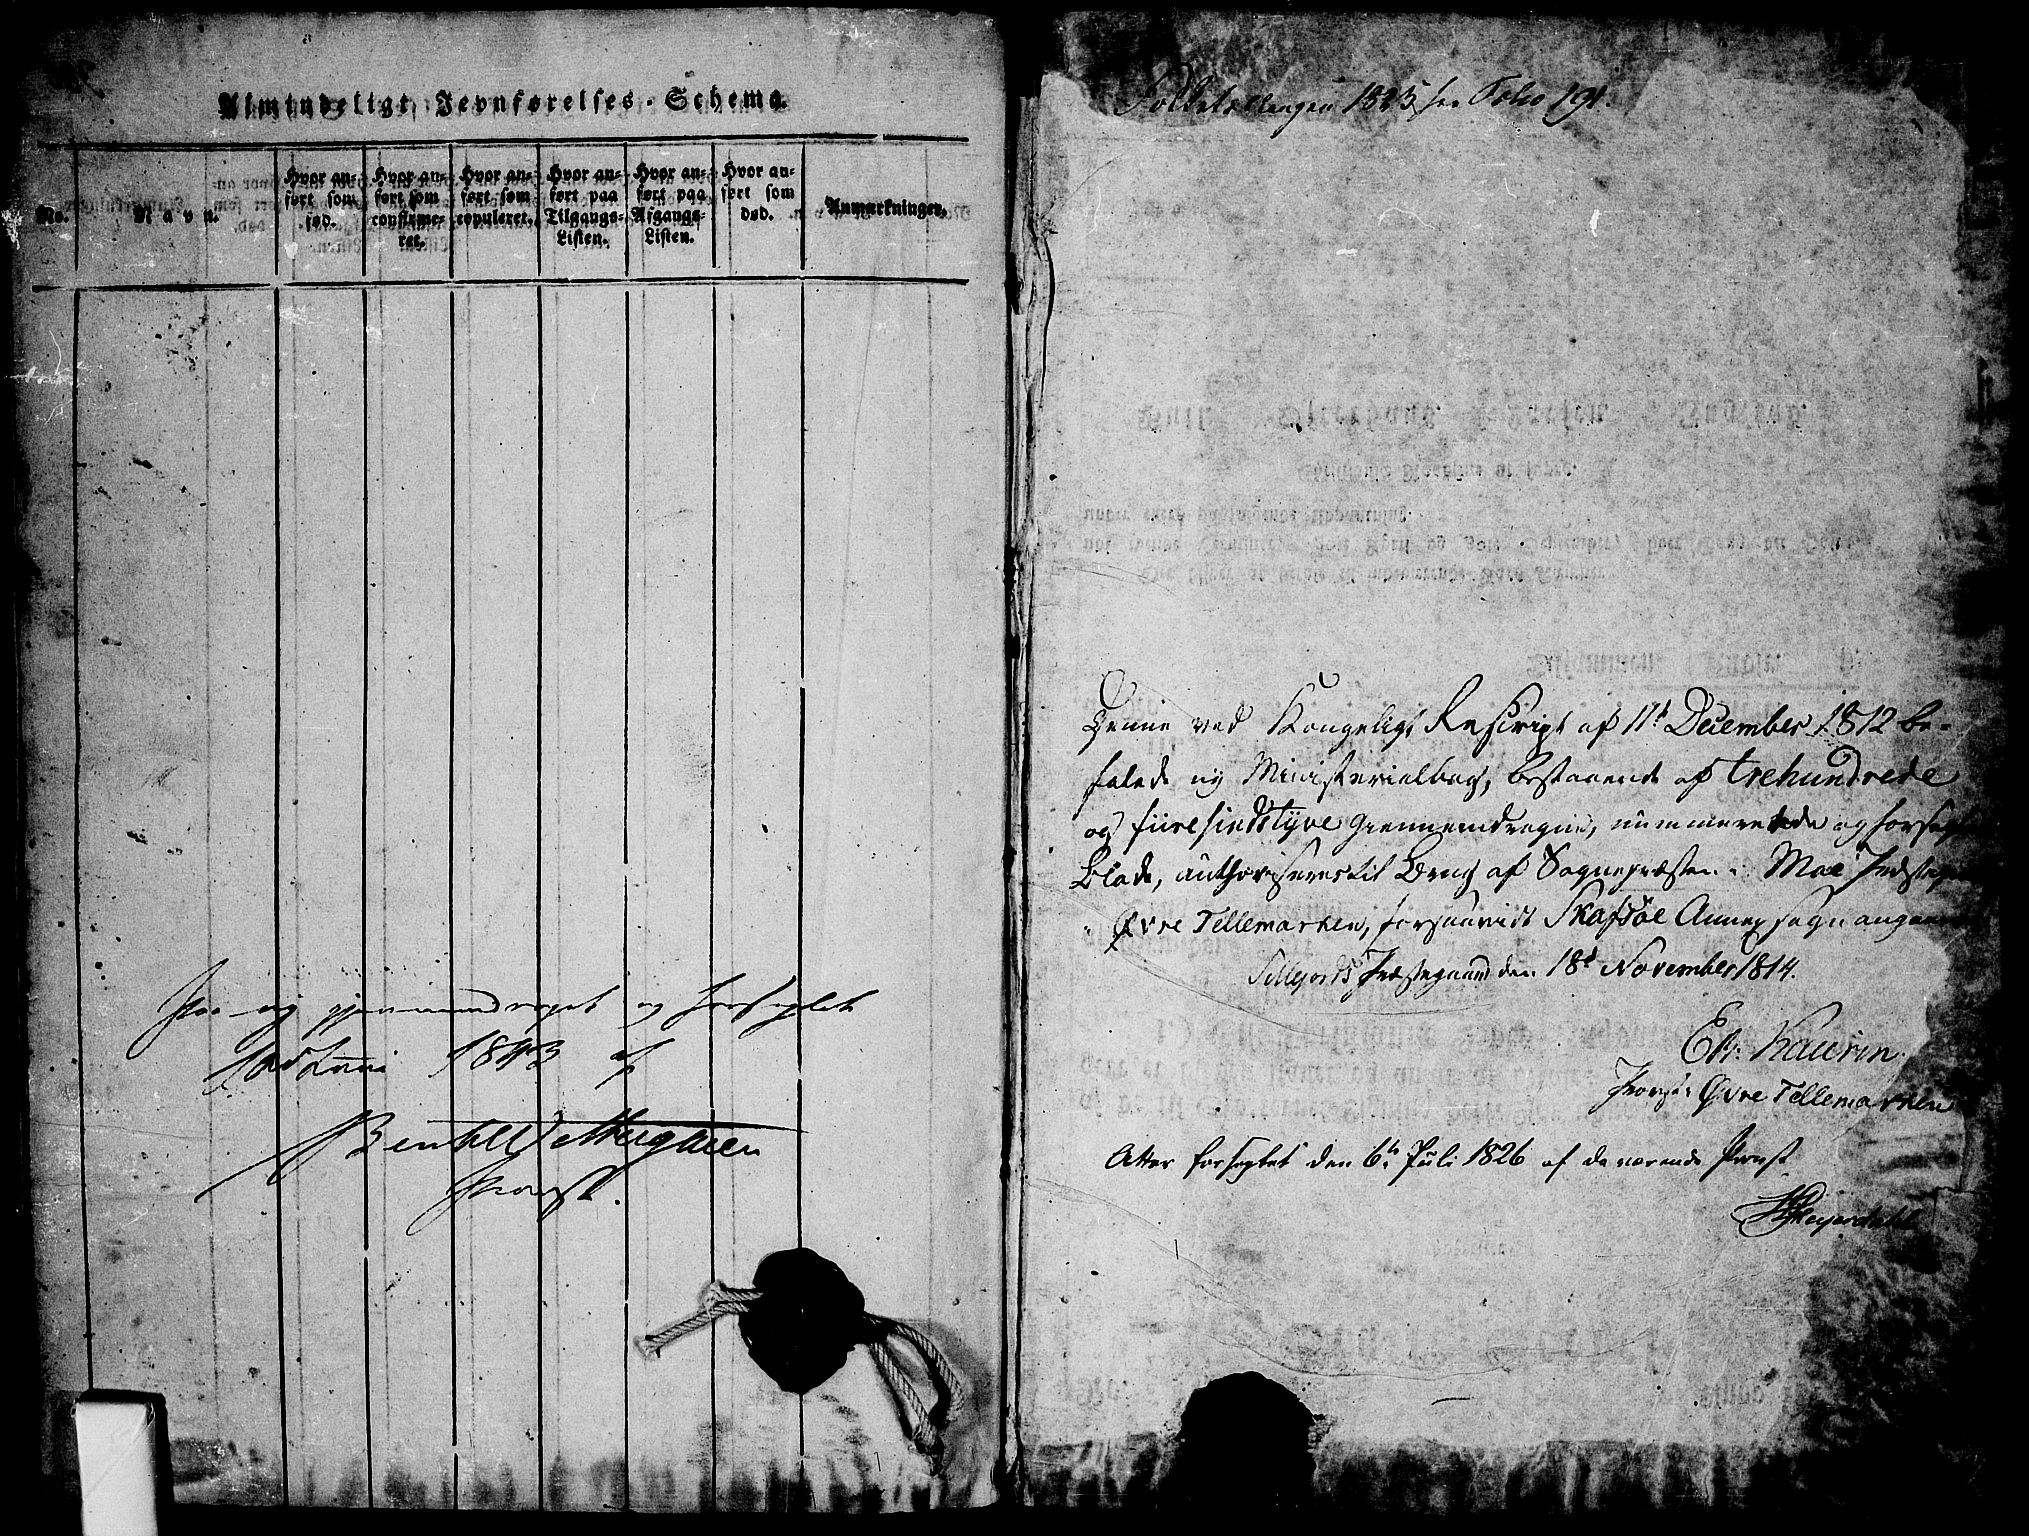 Almindeligt Jevnførelses-Schema.
No.
Navn.
Hvor anført som fød.
Hvor anført som confirmeret.
Hvor anført som copuleret.
Hvor anført paa Tilgangs-Listen.
Hvor anført paa Afgangs-Listen.
Hvor anført som død.
Anmærkninger.
Paa ny gjennemdraget og forseglet
Juni 1843 af
Provst.
Folketællingen 1825 see Folio 191.
Denne ved Kongeligt Rescript af 11te December 1812 be-
falede ny Ministerialbog, bestaaende af trehundrede
og fiiresindstyve giennemdragne, nummererede og forseglede
Blade, authoriseres til Brug af Sognepræsten i Moe Præstegield
i Øvre Tellemarken, forsaavidt Skafsøe Annexsogn angaaer.
Sillejords Præstegaard den 18de November 1814.
Kaurin
Provst i Øvre Tellemarken
Atter forseglet den 6te Juli 1826 af da værende Provst
Heyerdahl